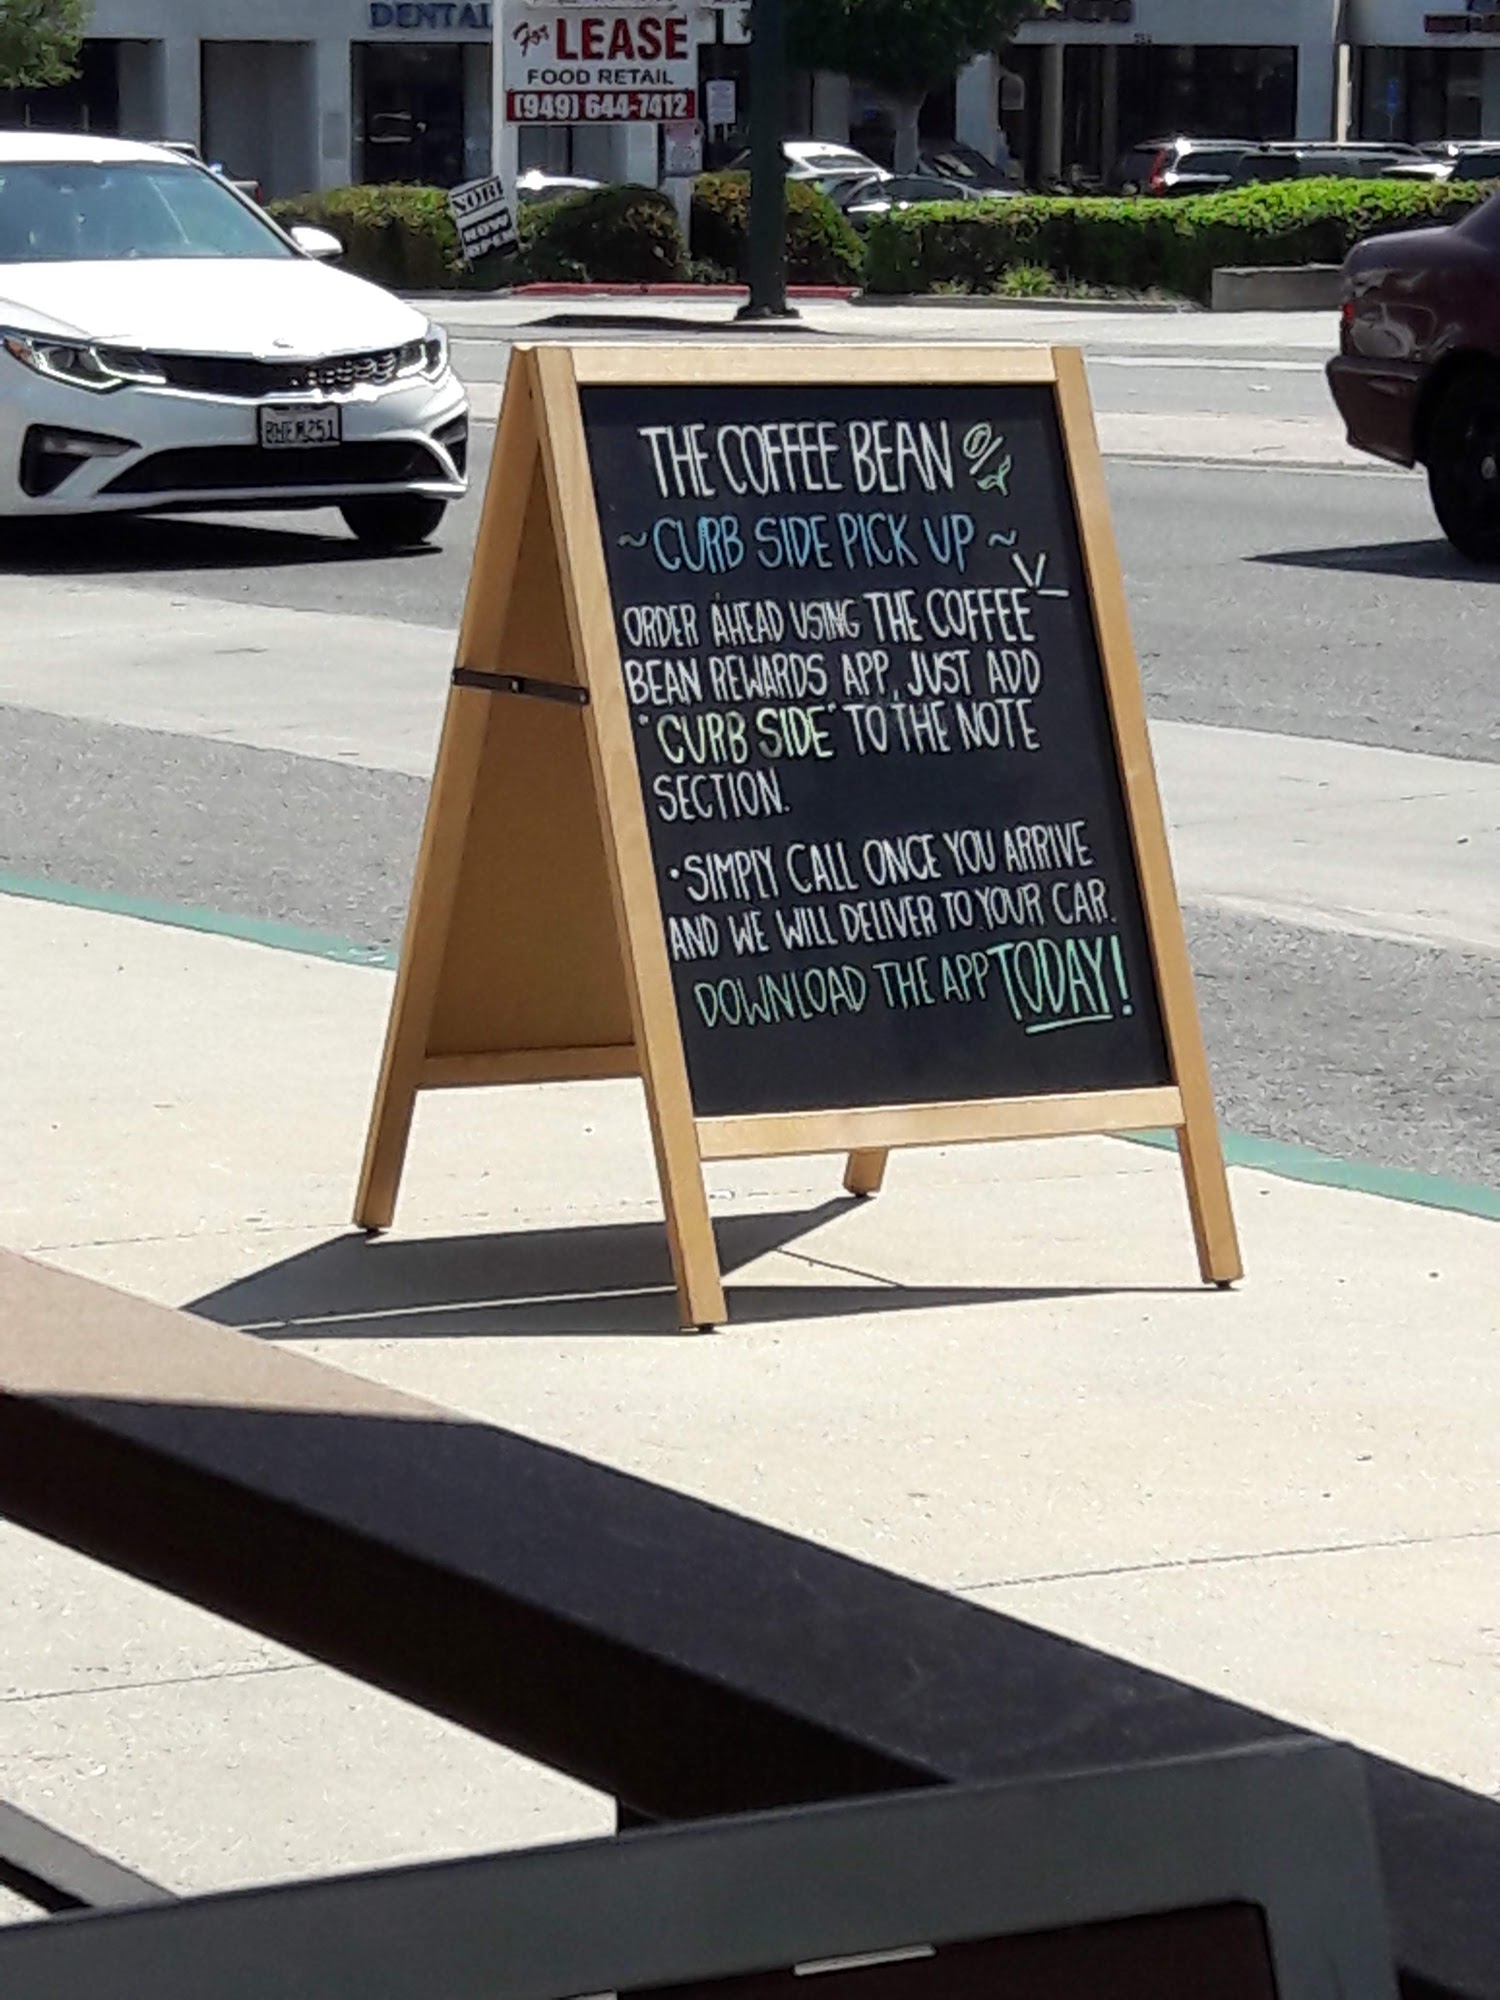 DENTAL
For LEASE
FOOD RETAIL
(949) 644-7412
NOW
OPEN
THE COFFEE BEAN
~CURB SIDE PICK UP~
ORDER AHEAD USING THE COFFEE
BEAN REWARDS APP, JUST ADD
"CURB SIDE" TO THE NOTE
SECTION.
•SIMPLY CALL ONCE YOU ARRIVE
AND WE WILL DELIVER TO YOUR CAR.
DOWNLOAD THE APP TODAY!